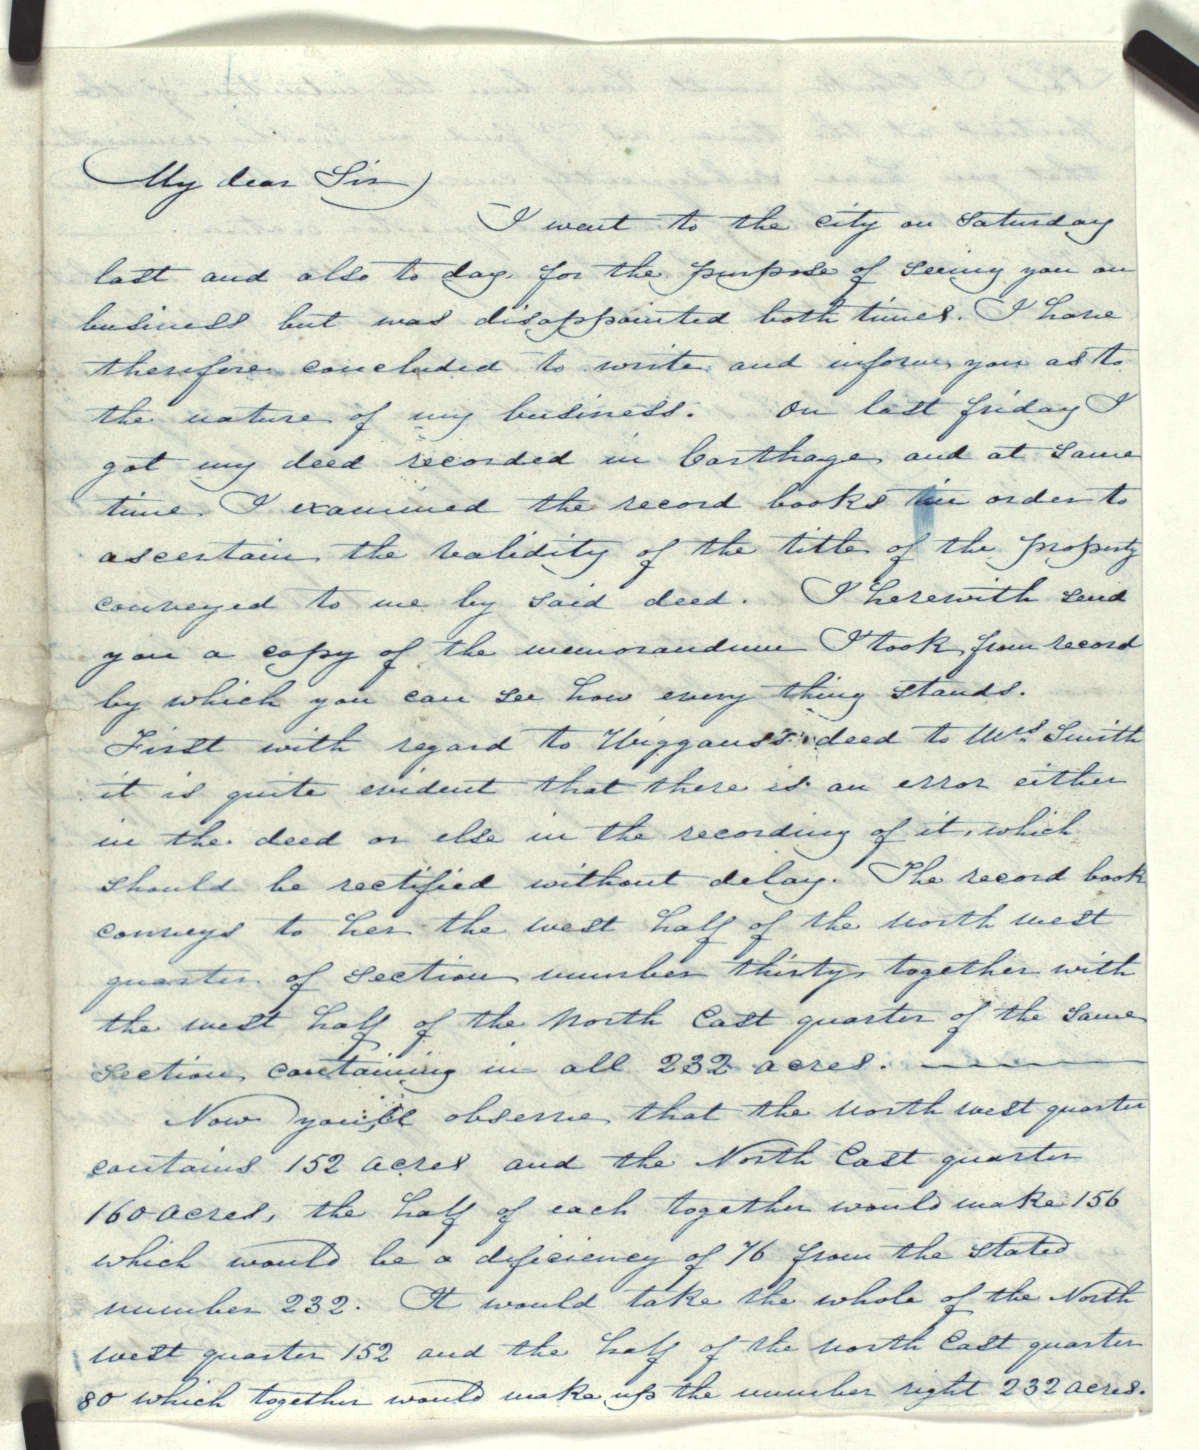 My dear Sir
I went to the city on Saturday
last and also to day for the purpose of seeing you on
business but was disappointed both times. I have
therefore concluded to write and inform you as to
the nature of my business. On last friday I
got my deed recorded in Carthage and at same
time I examined the record books in order to
ascertain the validity of the title of the property
conveyed to me by said deed. I herewith send
you a copy of the memorandum I took from record
by which you can see how every thing stands.
First with regard to Wiggans's deed to Mrs. Smith
it is quite evident that there is an error either
in the deed or else in the recording of it, which
should be rectified without delay. The record book
conveys to her the west half of the north west
quarter of section number thirty together with
the west half of the North East quarter of the same
section containing in all 232 acres.
Now you'll observe that the north west quarter
contains 152 acres and the North East quarter
160 acres, the half of each together would make 156
which would be a deficiency of 76 from the stated
number 232. It would take the whole of the North
west quarter 152 and the half of the north East quarter
80 which together would make up the number right 232 acres.